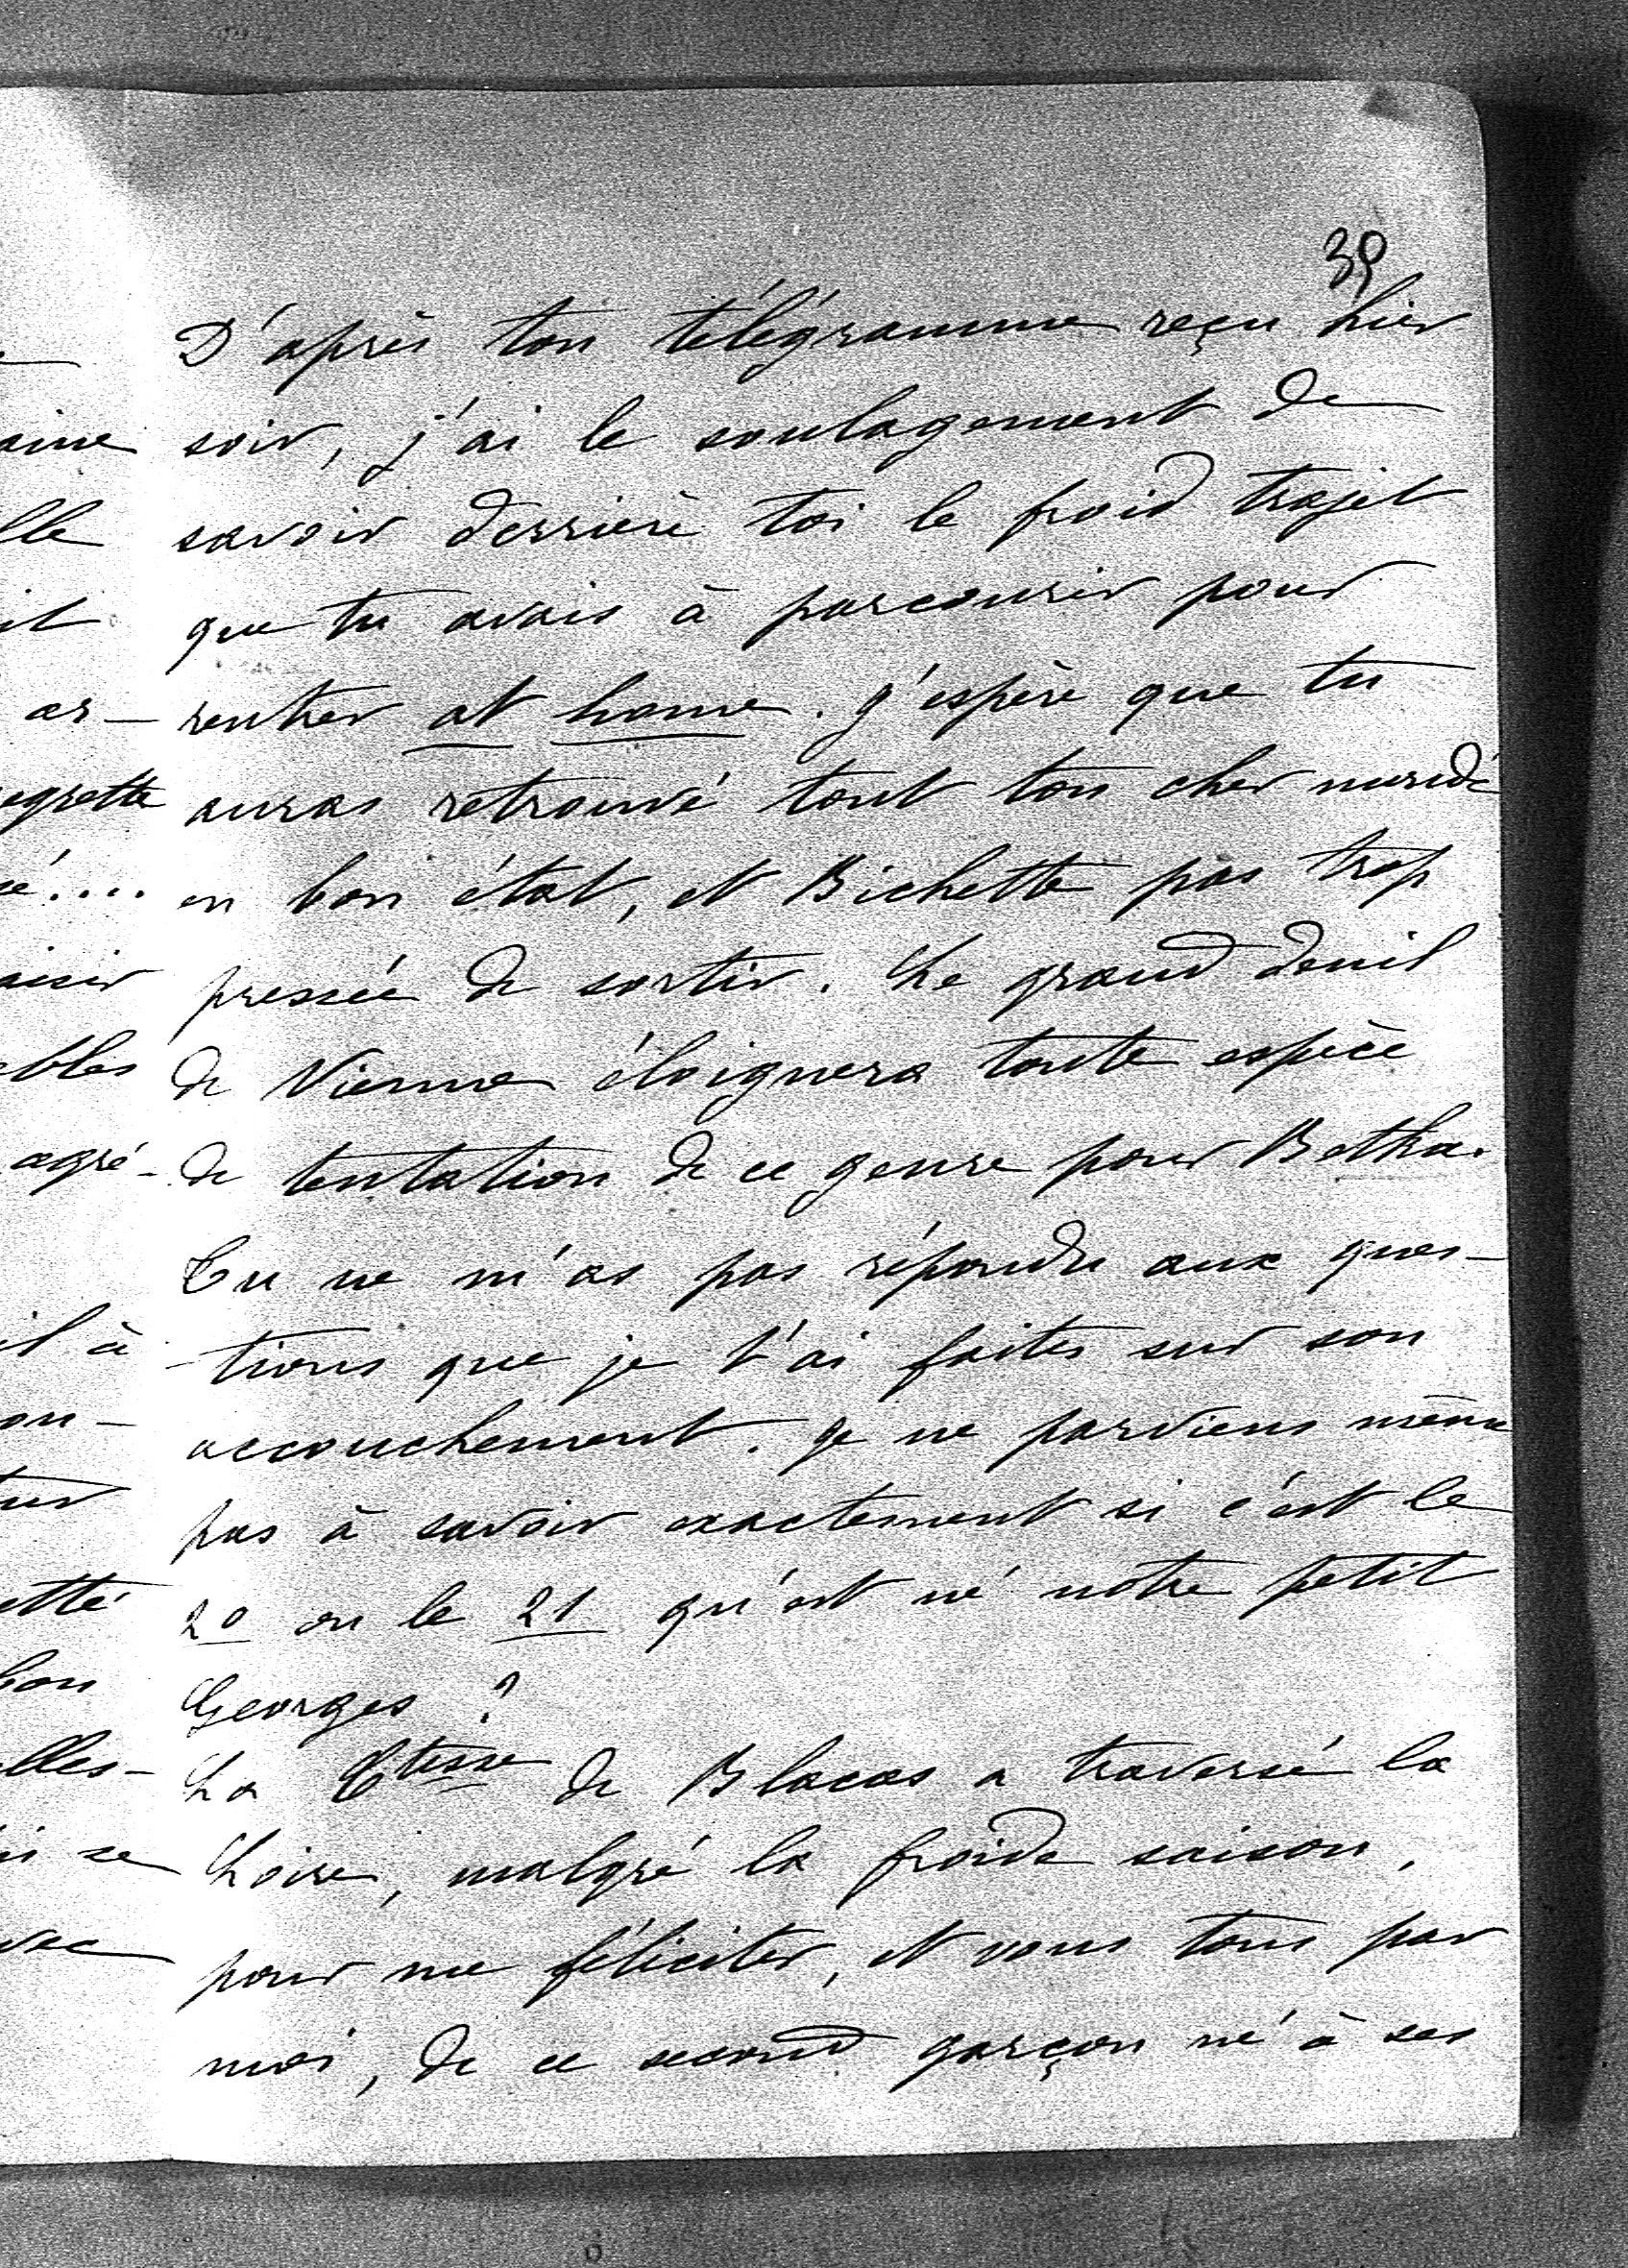 39
D'après ton télégramme reçu hier
soir, j'ai le soulagement de
savoir derrière toi le froid trajet
que tu avais à parcourir pour
rentrer at home. J'espère que tu
auras retrouvé tout ton cher monde
en bon état, et Bichette pas trop
pressée de sortir. Le grand deuil
de Vienne éloignera toute espèce
de tentation de ce genre pour Betka.
Tu ne m'as pas répondu aux ques-
-tions que je t'ai faites sur son
accouchement. Je ne parviens même
pas à savoir exactement si c'est le
20 ou le 21 qu'est né notre petit
Georges ?
La Ctesse de Blacas a traversé la
Loire, malgré la froide saison,
pour me féliciter, et vous tous par
moi, de ce second garçon né à ses